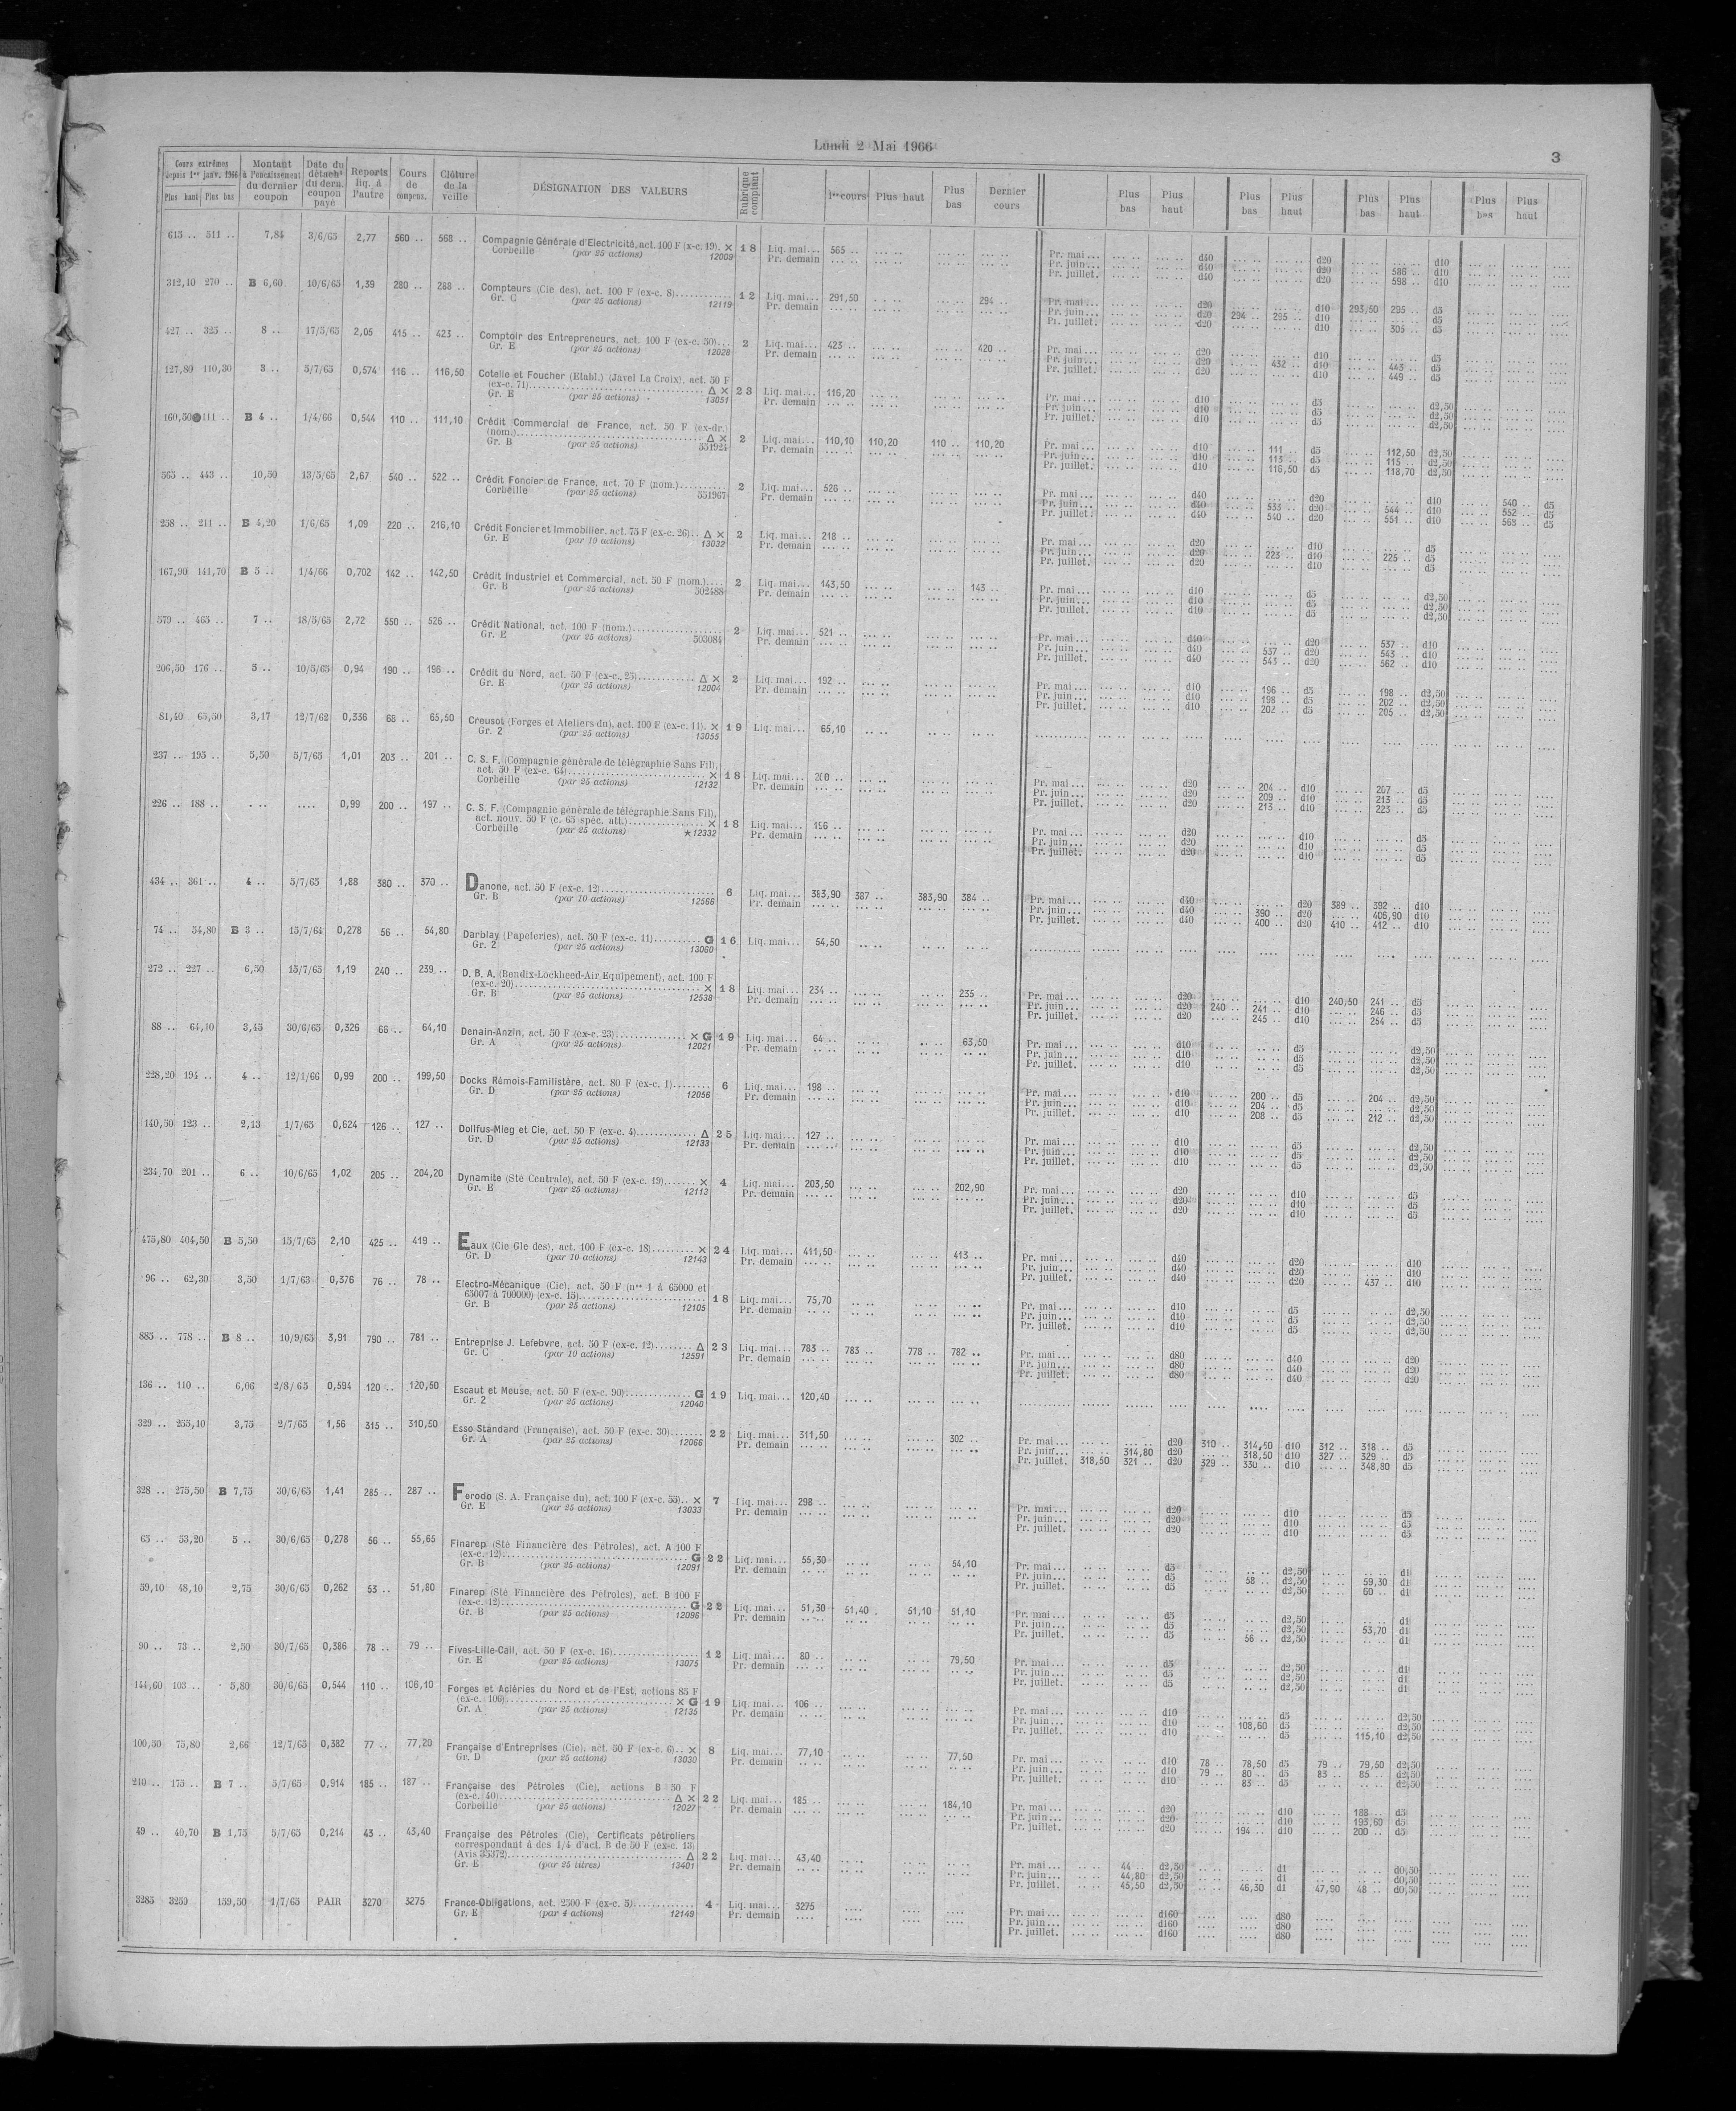 Lundi 2 Mai 1966
3
Cours extrêmes depuis 1er janv. 1966 Plus haut Plus bas | Montant à l'encaissement du dernier coupon | Date du détacht du dern. coupon payé | Reports liq. à l'autre | Cours de compens. | Clôture de la veille | DÉSIGNATION DES VALEURS | Rubrique comptant | 1er cours | Plus haut | Plus bas | Dernier cours | Plus bas | Plus haut | Plus bas | Plus haut | Plus bas | Plus haut | Plus bas | Plus haut
615 .. 511 .. 7,84 3/6/65 2,77 560 .. 568 .. Compagnie Générale d'Electricité, act. 100 F (x-c. 19). × 18 Liq. mai... 565 ..
Corbeille (par 25 actions) 12009 Pr. demain
Pr. mai... d40 d20 d10
Pr. juin... d40 d20 586 .. d10
Pr. juillet. d40 d20 598 .. d10
312,10 270 .. B 6,60 10/6/65 1,39 280 .. 288 .. Compteurs (Cie des), act. 100 F (ex-c. 8) 12 Liq. mai... 291,50 294 ..
Gr. C (par 25 actions) 12119 Pr. demain
Pr. mai... d20 d10 293,50 295 .. d5
Pr. juin... d20 294 .. 295 .. d10 d5
Pr. juillet. d20 d10 305 .. d5
427 .. 325 .. 8 .. 17/5/65 2,05 415 .. 423 .. Comptoir des Entrepreneurs, act. 100 F (ex-c. 50)... 2 Liq. mai... 423 .. 420 ..
Gr. E (par 25 actions) 12028 Pr. demain
Pr. mai... d20 d10 d5
Pr. juin... d20 432 .. d10 443 .. d5
Pr. juillet. d20 d10 449 .. d5
127,80 110,30 3 .. 5/7/65 0,574 116 .. 116,50 Cotelle et Foucher (Etabl.) (Javel La Croix), act. 50 F
(ex-c. 71) Δ × 23 Liq. mai... 116,20
Gr. E (par 25 actions) 13051 Pr. demain
Pr. mai... d10 d5 d2,50
Pr. juin... d10 d5 d2,50
Pr. juillet. d10 d5 d2,50
160,50 111 .. B 4 .. 1/4/66 0,544 110 .. 111,10 Crédit Commercial de France, act. 50 F (ex-dr.)
(nom.) Δ × 2 Liq. mai... 110,10 110,20 110 .. 110,20
Gr. B (par 25 actions) 551924 Pr. demain
Pr. mai... d10 111 .. d5 112,50 d2,50
Pr. juin... d10 113 .. d5 115 .. d2,50
Pr. juillet. d10 116,50 d5 118,70 d2,50
565 .. 443 .. 10,50 13/5/65 2,67 540 .. 522 .. Crédit Foncier de France, act. 70 F (nom.) 2 Liq. mai... 526 ..
Corbeille (par 25 actions) 551967 Pr. demain
Pr. mai... d40 d20 d10 540 .. d5
Pr. juin... d40 533 .. d20 544 .. d10 552 .. d5
Pr. juillet. d40 540 .. d20 551 .. d10 563 .. d5
258 .. 211 .. B 4,20 1/6/65 1,09 220 .. 216,10 Crédit Foncier et Immobilier, act. 75 F (ex-c. 26).. Δ × 2 Liq. mai... 218 ..
Gr. E (par 10 actions) 13032 Pr. demain
Pr. mai... d20 d10 d5
Pr. juin... d20 223 .. d10 225 .. d5
Pr. juillet. d20 d10 d5
167,90 141,70 B 5 .. 1/4/66 0,702 142 .. 142,50 Crédit Industriel et Commercial, act. 50 F (nom.).... 2 Liq. mai... 143,50 143 ..
Gr. B (par 25 actions) 502488 Pr. demain
Pr. mai... d10 d5 d2,50
Pr. juin... d10 d5 d2,50
Pr. juillet. d10 d5 d2,50
579 .. 465 .. 7 .. 18/5/65 2,72 550 .. 526 .. Crédit National, act. 100 F (nom.) 2 Liq. mai... 521 ..
Gr. E (par 25 actions) 503084 Pr. demain
Pr. mai... d40 d20 537 .. d10
Pr. juin... d40 537 .. d20 543 .. d10
Pr. juillet. d40 543 .. d20 562 .. d10
206,50 176 .. 5 .. 10/5/65 0,94 190 .. 196 .. Crédit du Nord, act. 50 F (ex-c. 25) Δ × 2 Liq. mai... 192 ..
Gr. E (par 25 actions) 12004 Pr. demain
Pr. mai... d10 196 .. d5 198 .. d2,50
Pr. juin... d10 198 .. d5 202 .. d2,50
Pr. juillet. d10 202 .. d5 205 .. d2,50
81,40 65,50 3,17 12/7/62 0,336 68 .. 65,50 Creusot (Forges et Ateliers du), act. 100 F (ex-c. 11). × 19 Liq. mai... 65,10
Gr. 2 (par 25 actions) 13055
237 .. 195 .. 5,50 5/7/65 1,01 203 .. 201 .. C. S. F. (Compagnie générale de télégraphie Sans Fil),
act. 50 F (ex-c. 64) × 18 Liq. mai... 200 ..
Corbeille (par 25 actions) 12132 Pr. demain
Pr. mai... d20 204 .. d10 207 .. d5
Pr. juin... d20 209 .. d10 213 .. d5
Pr. juillet. d20 213 .. d10 223 .. d5
226 .. 188 .. 0,99 200 .. 197 .. C. S. F. (Compagnie générale de télégraphie Sans Fil),
act. nouv. 50 F (c. 65 spéc. att.) × 18 Liq. mai... 196 ..
Corbeille (par 25 actions) ★12332 Pr. demain
Pr. mai... d20 d10 d5
Pr. juin... d20 d10 d5
Pr. juillet. d20 d10 d5
434 .. 361 .. 4 .. 5/7/65 1,88 380 .. 370 .. Danone, act. 50 F (ex-c. 12) 6 Liq. mai... 383,90 387 .. 383,90 384 ..
Gr. B (par 10 actions) 12566 Pr. demain
Pr. mai... d40 d20 389 .. 392 .. d10
Pr. juin... d40 390 .. d20 406,90 d10
Pr. juillet. d40 400 .. d20 410 .. 412 .. d10
74 .. 54,80 B 3 .. 15/7/64 0,278 56 .. 54,80 Darblay (Papeteries), act. 50 F (ex-c. 11) G 16 Liq. mai... 54,50
Gr. 2 (par 25 actions) 13060
272 .. 227 .. 6,50 15/7/65 1,19 240 .. 239 .. D. B. A. (Bendix-Lockheed-Air Equipement), act. 100 F
(ex-c. 20) × 18 Liq. mai... 234 .. 235 ..
Gr. B (par 25 actions) 12538 Pr. demain
Pr. mai... d20 d10 240,50 241 .. d5
Pr. juin... d20 240 .. 241 .. d10 246 .. d5
Pr. juillet. d20 245 .. d10 254 .. d5
88 .. 64,10 3,45 30/6/65 0,326 66 .. 64,10 Denain-Anzin, act. 50 F (ex-c. 23) × G 19 Liq. mai... 64 .. 63,50
Gr. A (par 25 actions) 12021 Pr. demain
Pr. mai... d10 d5 d2,50
Pr. juin... d10 d5 d2,50
Pr. juillet. d10 d5 d2,50
228,20 194 .. 4 .. 12/1/66 0,99 200 .. 199,50 Docks Rémois-Familistère, act. 80 F (ex-c. 1) 6 Liq. mai... 198 ..
Gr. D (par 25 actions) 12056 Pr. demain
Pr. mai... d10 200 .. d5 204 .. d2,50
Pr. juin... d10 204 .. d5 d2,50
Pr. juillet. d10 208 .. d5 212 .. d2,50
140,50 123 .. 2,13 1/7/65 0,624 126 .. 127 .. Dollfus-Mieg et Cie, act. 50 F (ex-c. 4) Δ 25 Liq. mai... 127 ..
Gr. D (par 25 actions) 12133 Pr. demain
Pr. mai... d10 d5 d2,50
Pr. juin... d10 d5 d2,50
Pr. juillet. d10 d5 d2,50
234,70 201 .. 6 .. 10/6/65 1,02 205 .. 204,20 Dynamite (Sté Centrale), act. 50 F (ex-c. 19) × 4 Liq. mai... 203,50 202,90
Gr. E (par 25 actions) 12113 Pr. demain
Pr. mai... d20 d10 d5
Pr. juin... d20 d10 d5
Pr. juillet. d20 d10 d5
475,80 404,50 B 5,50 15/7/65 2,10 425 .. 419 .. Eaux (Cie Gle des), act. 100 F (ex-c. 18) × 24 Liq. mai... 411,50 413 ..
Gr. D (par 10 actions) 12143 Pr. demain
Pr. mai... d40 d20 d10
Pr. juin... d40 d20 d10
Pr. juillet. d40 d20 437 .. d10
96 .. 62,30 3,50 1/7/63 0,376 76 .. 78 .. Electro-Mécanique (Cie), act. 50 F (nos 1 à 65000 et
65007 à 700000) (ex-c. 15) 18 Liq. mai... 75,70
Gr. B (par 25 actions) 12105 Pr. demain
Pr. mai... d10 d5 d2,50
Pr. juin... d10 d5 d2,50
Pr. juillet. d10 d5 d2,50
885 .. 778 .. B 8 .. 10/9/65 3,91 790 .. 781 .. Entreprise J. Lefebvre, act. 50 F (ex-c. 12) Δ 23 Liq. mai... 783 .. 783 .. 778 .. 782 ..
Gr. C (par 10 actions) 12591 Pr. demain
Pr. mai... d80 d40 d20
Pr. juin... d80 d40 d20
Pr. juillet. d80 d40 d20
136 .. 110 .. 6,06 2/8/65 0,594 120 .. 120,50 Escaut et Meuse, act. 50 F (ex-c. 90) G 19 Liq. mai... 120,40
Gr. 2 (par 25 actions) 12040
329 .. 255,10 3,75 2/7/65 1,56 315 .. 310,50 Esso Standard (Française), act. 50 F (ex-c. 30) 22 Liq. mai... 311,50 302 ..
Gr. A (par 25 actions) 12066 Pr. demain
Pr. mai... d20 310 .. 314,50 d10 312 .. 318 .. d5
Pr. juin... 314,80 d20 318,50 d10 327 .. 329 .. d5
Pr. juillet. 318,50 321 .. d20 329 .. 330 .. d10 348,80 d5
328 .. 275,50 B 7,75 30/6/65 1,41 285 .. 287 .. Ferodo (S. A. Française du), act. 100 F (ex-c. 55).. × 7 Liq. mai... 298 ..
Gr. E (par 25 actions) 13033 Pr. demain
Pr. mai... d20 d10 d5
Pr. juin... d20 d10 d5
Pr. juillet. d20 d10 d5
65 .. 53,20 5 .. 30/6/65 0,278 56 .. 55,65 Finarep (Sté Financière des Pétroles), act. A 100 F
(ex-c. 12) G 22 Liq. mai... 55,30 54,10
Gr. B (par 25 actions) 12091 Pr. demain
Pr. mai... d5 d2,50 d1
Pr. juin... d5 58 .. d2,50 59,30 d1
Pr. juillet. d5 d2,50 60 .. d1
59,10 48,10 2,75 30/6/65 0,262 53 .. 51,80 Finarep (Sté Financière des Pétroles), act. B 100 F
(ex-c. 12) G 22 Liq. mai... 51,30 51,40 51,10 51,10
Gr. B (par 25 actions) 12096 Pr. demain
Pr. mai... d5 d2,50 d1
Pr. juin... d5 d2,50 53,70 d1
Pr. juillet. d5 56 .. d2,50 d1
90 .. 73 .. 2,50 30/7/65 0,386 78 .. 79 .. Fives-Lille-Cail, act. 50 F (ex-c. 16) 12 Liq. mai... 80 .. 79,50
Gr. E (par 25 actions) 13075 Pr. demain
Pr. mai... d5 d2,50 d1
Pr. juin... d5 d2,50 d1
Pr. juillet. d5 d2,50 d1
144,60 103 .. 5,80 30/6/65 0,544 110 .. 106,10 Forges et Aciéries du Nord et de l'Est, actions 85 F
(ex-c. 106) × G 19 Liq. mai... 106 ..
Gr. A (par 25 actions) 12135 Pr. demain
Pr. mai... d10 d5 d2,50
Pr. juin... d10 108,60 d5 d2,50
Pr. juillet. d10 d5 115,10 d2,50
100,50 75,80 2,66 12/7/65 0,382 77 .. 77,20 Française d'Entreprises (Cie), act. 50 F (ex-c. 6).. × 8 Liq. mai... 77,10 77,50
Gr. D (par 25 actions) 13030 Pr. demain
Pr. mai... d10 78 .. 78,50 d5 79 .. 79,50 d2,50
Pr. juin... d10 79 .. 80 .. d5 83 .. 85 .. d2,50
Pr. juillet. d10 83 .. d5 d2,50
210 .. 175 .. B 7 .. 5/7/65 0,914 185 .. 187 .. Française des Pétroles (Cie), actions B 50 F
(ex-c. 40) Δ × 22 Liq. mai... 185 .. 184,10
Corbeille (par 25 actions) 12027 Pr. demain
Pr. mai... d20 d10 188 .. d5
Pr. juin... d20 d10 193,60 d5
Pr. juillet. d20 194 .. d10 200 .. d5
49 .. 40,70 B 1,75 5/7/65 0,214 43 .. 43,40 Française des Pétroles (Cie), Certificats pétroliers
correspondant à des 1/4 d'act. B de 50 F (ex-c. 13)
(Avis 35372) Δ 22 Liq. mai... 43,40
Gr. E (par 25 titres) 13401 Pr. demain
Pr. mai... 44 .. d2,50 d1 d0,50
Pr. juin... 44,80 d2,50 d1 d0,50
Pr. juillet. 45,50 d2,50 46,30 d1 47,90 48 .. d0,50
3285 3250 159,50 1/7/65 PAIR 3270 3275 France-Obligations, act. 2500 F (ex-c. 5) 4 Liq. mai... 3275
Gr. E (par 4 actions) 12149 Pr. demain
Pr. mai... d160 d80
Pr. juin... d160 d80
Pr. juillet. d160 d80